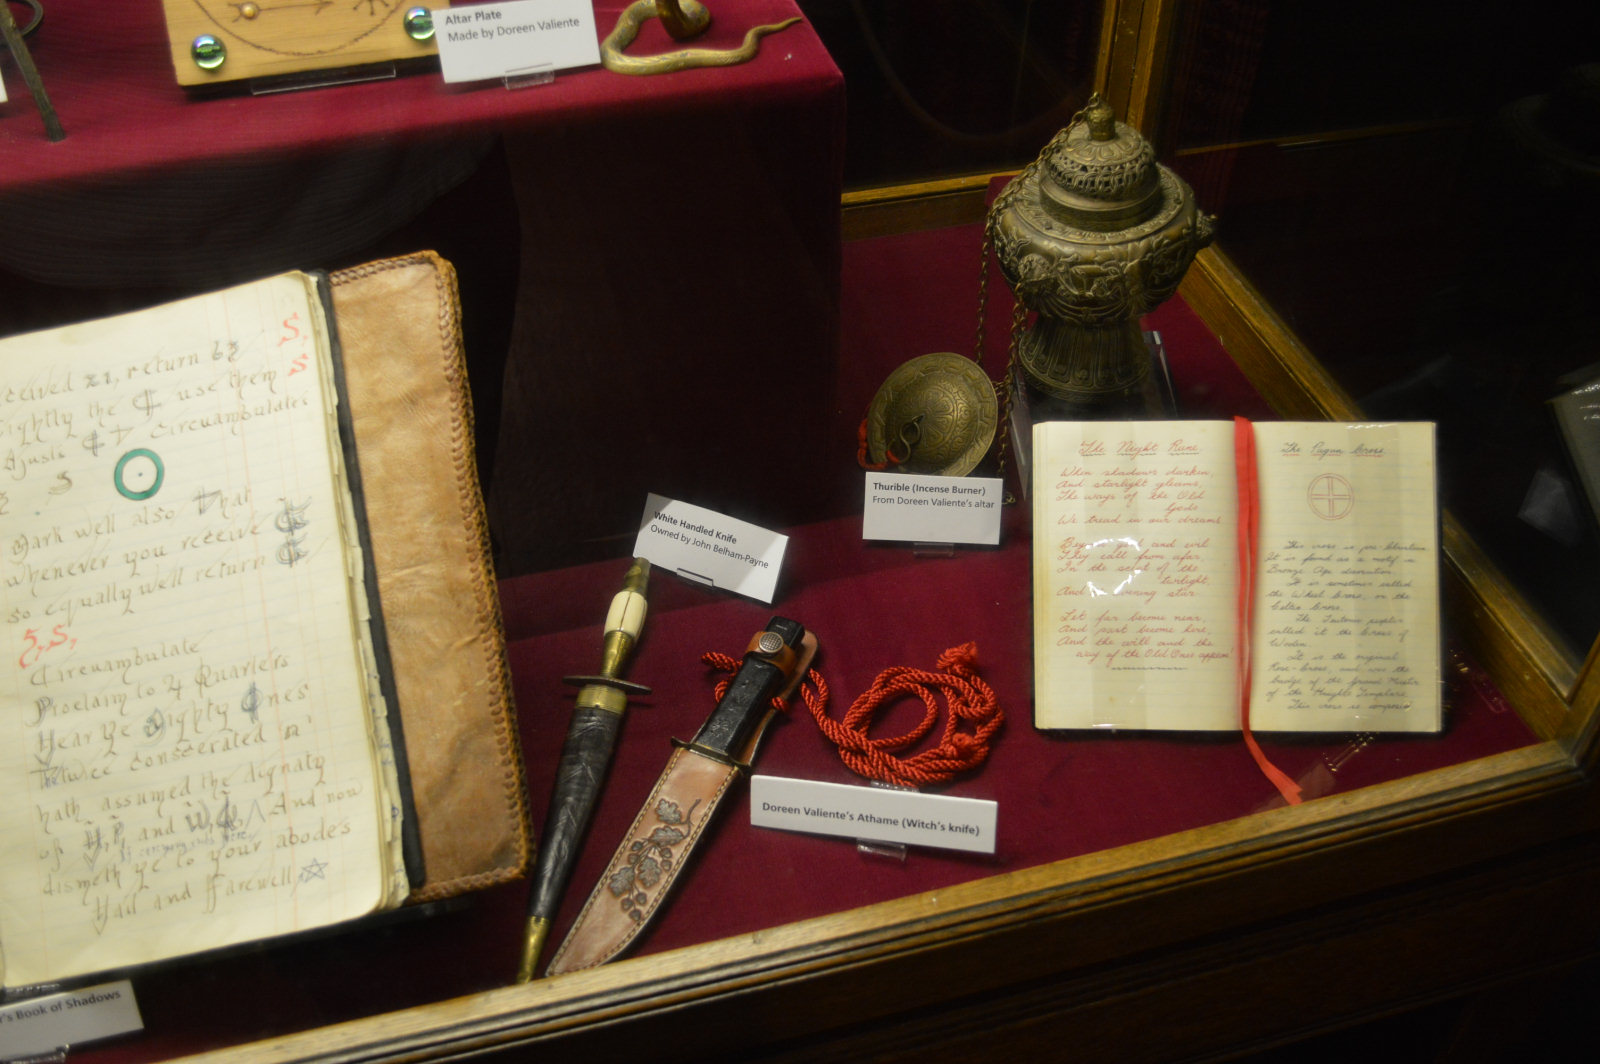 Altar Plate
Made by Doreen Valiente
return
S,
the use them
S
Circuambulates
Mark well also that
whenever you receive
so equally well return
S,
Circuambulate
Proclaim to 4 Quarters
Hear Ye Mighty Ones
hath assumed the dignaty
of and And now
to your abodes
Hail and Farewell
's Book of Shadows
White Handled Knife
Owned by John Belham-Payne
Thurible (Incense Burner)
From Doreen Valiente's altar
Doreen Valiente's Athame (Witch's knife)
The Night Rune.
When shadows darken,
And starlight gleams,
The ways of the Old
Gods
We tread in our dreams
and
They call from afar,
In the scent of the
twilight,
And evening star.
Let far become near,
And past become here,
And the will and the
way of the Old Ones appear!
The Pagan Cross.
This cross is pre-Christian
It is found as a motif in
Bronze Age decoration.
It is sometimes called
the Wheel Cross, or the
Celtic Cross.
The Teutonic peoples
called it the Cross of
Woden.
It is the original
Rose-Cross, and was the
badge of the Grand Master
of the Knights Templars.
This cross is composed